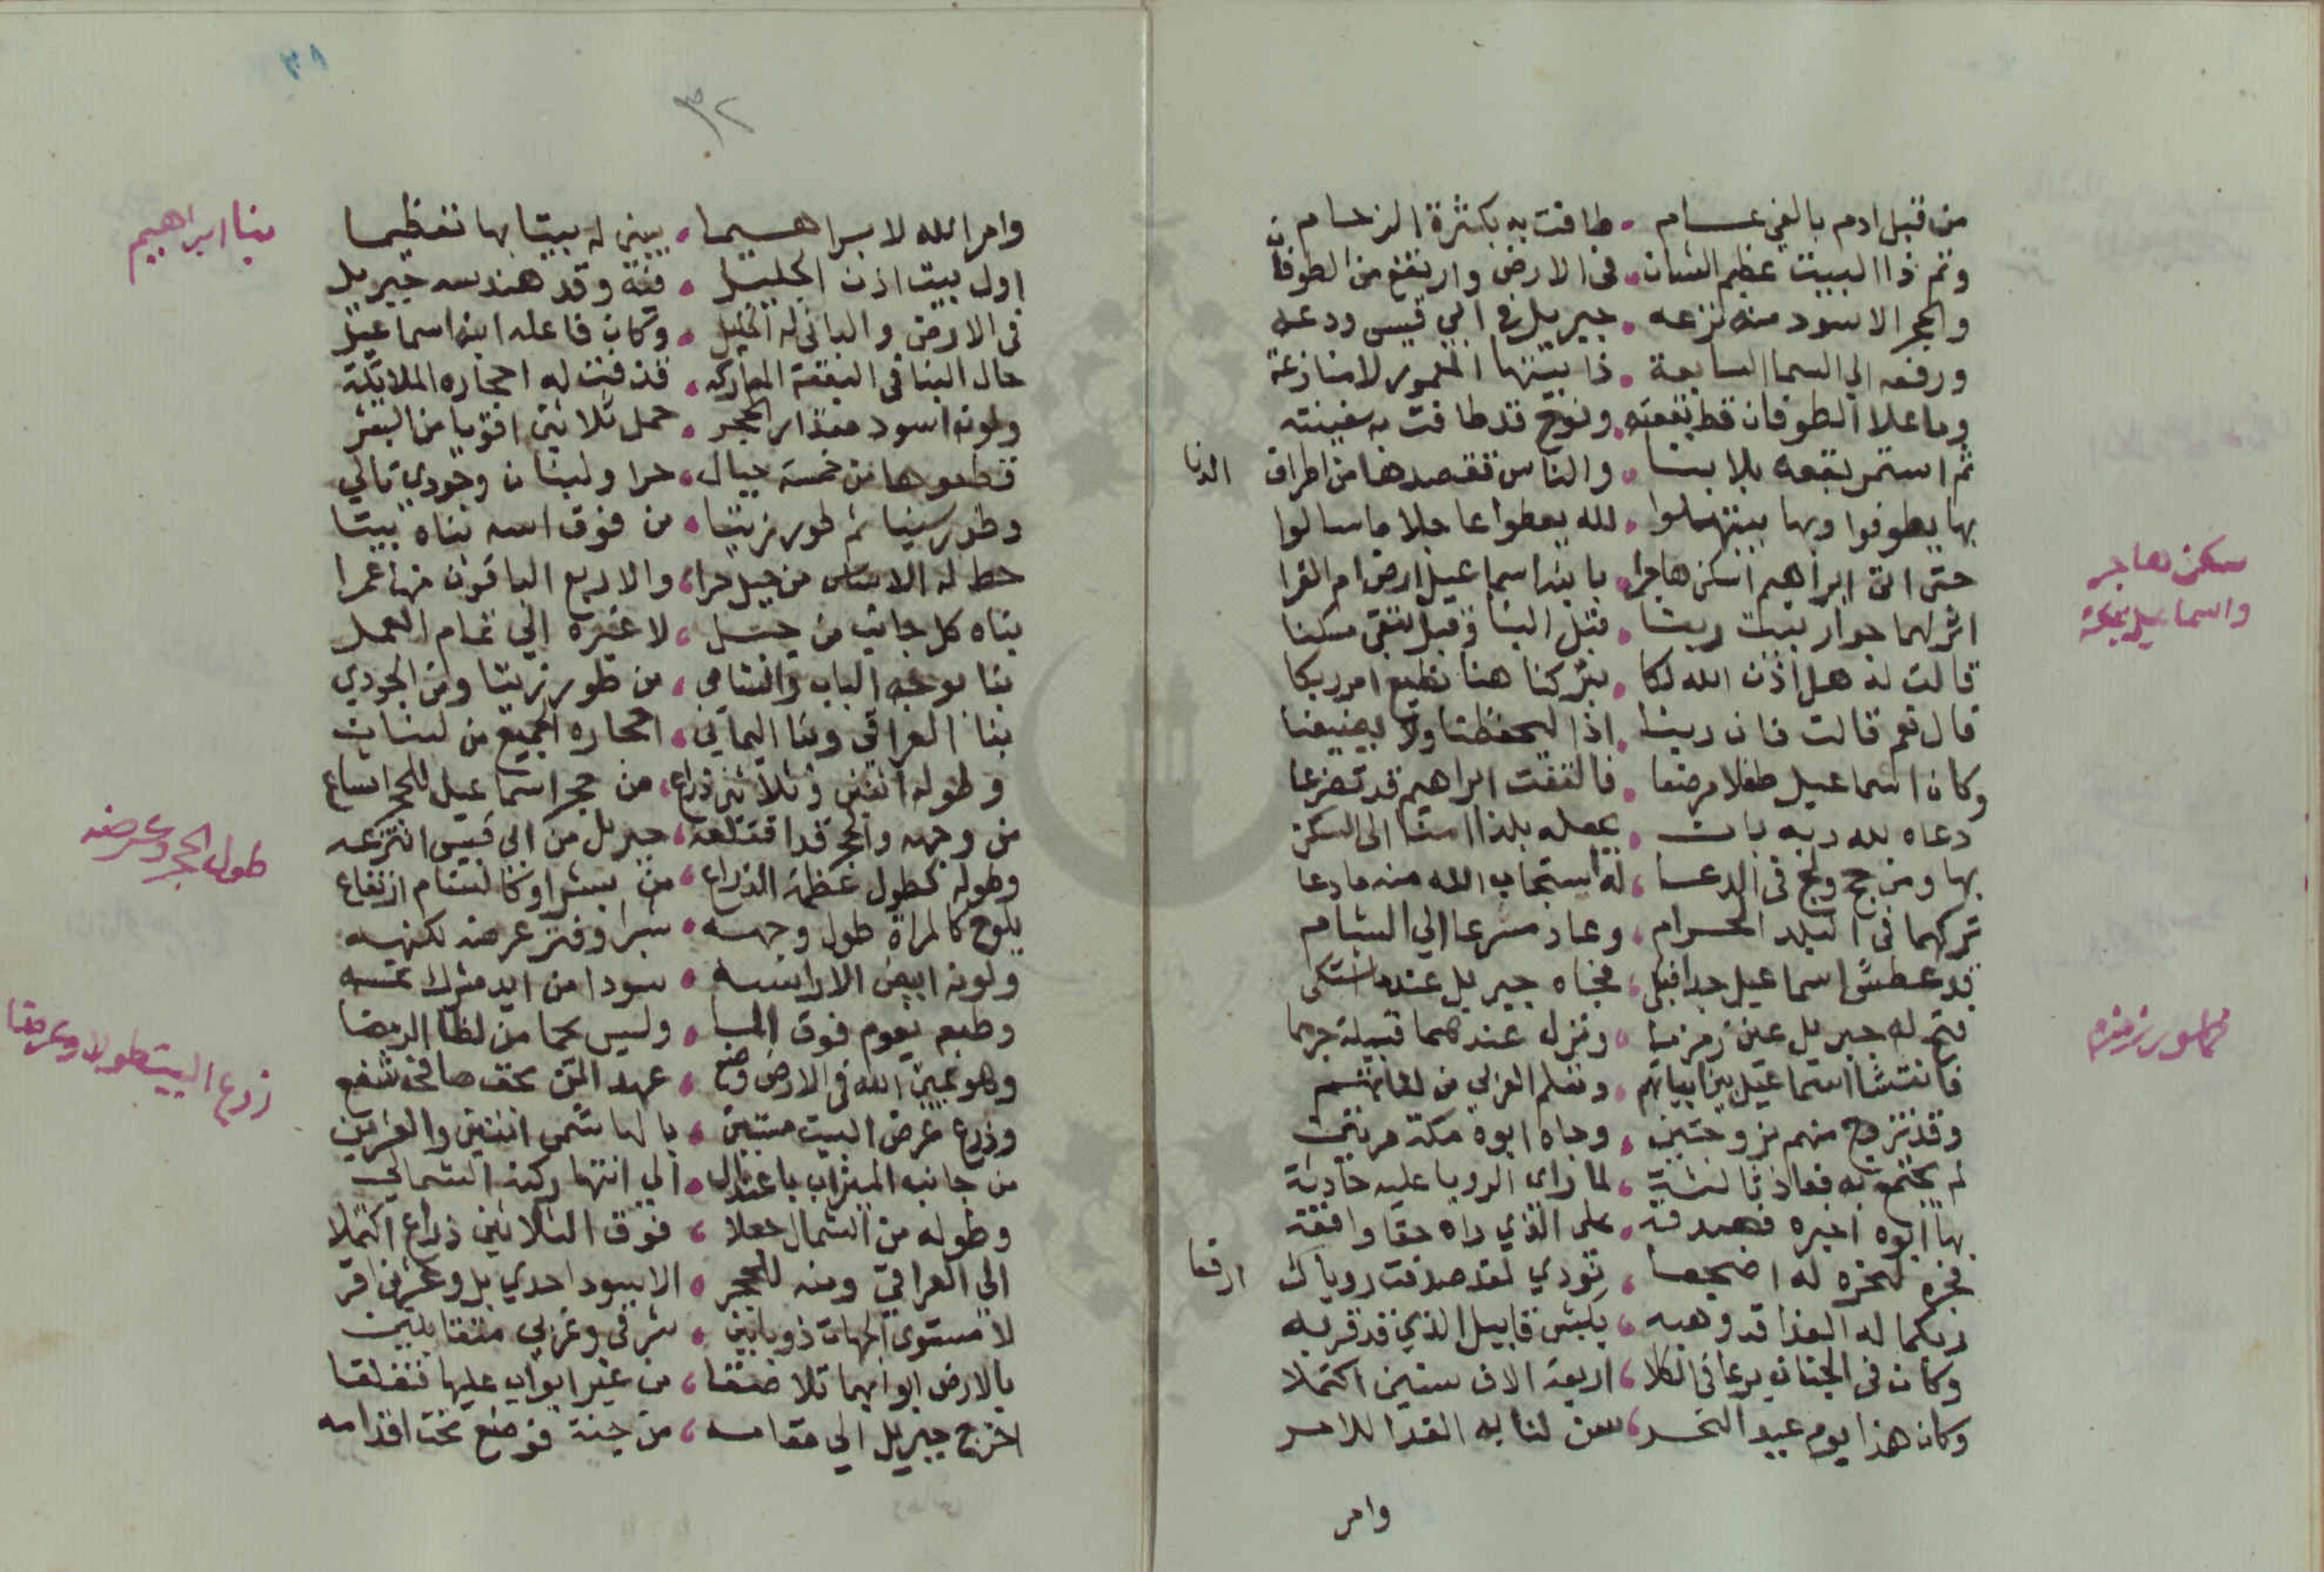 من قبل ادم بالفي عام • طافت به بكثرة الزحام
وتم ذا البيت عظيم الشان • في الارض وارتفع من الطوفان
والحجر الاسود منه نزعه • جبريل في ابي قبيس ودعه
ورفعه الي السما السابعة • ذا بيتها المعمور لا منازعة
وما علا الطوفان قط بقعته • ونوح قد طافت به سفينته
ثم استمر بقعه بلا بنا • والناس تقصدها من اطراف الدنا
بها يطوفوا وبها يبتهلوا • لله يعطوا عاجلا ما سالوا
سكن هاجر
واسماعيل بمكة
حتى اتى ابراهيم اسكن هاجرا • بابنه اسماعيل ارض ام القرا
انزلهما جوار بيت ربنا • قبل البنا وقبل تبقى مسكنا
قالت له هل اذن الله لكا • بتركنا هنا نطيع امر ربكا
قال نعم قالت فان ربنا • اذا ليحفظنا ولا يضيعنا
وكان اسماعيل طفلا مرضعا • فالتفت ابراهيم قد تضرعا
دعاه لله ربه بان • يجعله بلدا امنا الى السكن
بها ومن حج ولج في الدعا • له استجاب الله منه ما دعا
تركهما في البلد الحرام • وعاد مسرعا الي الشام
قد عطش اسماعيل جدا فبكى • فجاه جبريل عندما اشتكى
ظهور زمزم
فتح له جبريل عين زمزما • ونزل عندهما قبيلة جرهما
فانتشا اسماعيل بين ابياتهم • وتعلم العربي من لغاتهم
وقد تزوج منهم بزوجتين • وجاه ابوه مكة مرتين
لم يجتمع به فعاد ثالثة • لما راى الرويا عليه حادثة
بها ابوه اخبره فصدقه • على الذي راه حقا وافقه
فجره لنحره له اضجعا • نودي لقد صدقت روياك ارفعا
ربكما له الفدا قد وهبه • بكبش قابيل الذي قد قربه
وكان في الجنان يرعا في الكلا • اربعة الاف سنين اكتملا
وكان هذا يوم عيد النحر • سن لنا به الفدا للامر
وامر
٣٨
٣٢
بنا ابراهيم
وامر الله لابراهيما • يبني له بيتا بها تعظيما
اول بيت اذن الجليل • فيه وقد هندسه جبريل
في الارض والباني له الخليل • وكان فاعله ابنه اسماعيل
حال البنا في البقعة المباركه • قذفت له احجاره الملائكة
ولونه اسود مقدار الحجر • حمل ثلاثين اقويا من البشر
قطعوها من خمسة جبال • حرا ولبنان وجودي تالي
وطور سينا ثم طور زيتا • من فوق اسه بناه بيتا
حط له الاساس من جبل حرا • والاربع الباقون منها عمرا
بناه كل جانب من جبل • لا غيره الي تمام العمل
بنا بوجه الباب والشامي • من طور زيتا ومن الجودي
بنا العراقي وبنا اليماني • احجاره الجميع من لبنان
وطوله اثنين وثلاثين ذراع • من حجر اسماعيل للحجر اتساع
طول الحجر وعرضه
من وجهه والحجر قد اقتلعه • جبريل من ابي قبيس انتزعه
وطوله كطول عظمة الذراع • من بشر او كالسنام ارتفاع
يلوح كالمراة طول وجهه • شبرا وفتر عرضه لكنهه
ولونه ابيض الا راسه • سودا من ايد مشرك تمسه
وطبعه يعوم فوق الما • وليس يحما من لظا الرمضا
وهو يمين الله في الارض وضع • عهد التقى بحق صافحه شفع
ذرع البيت طولا وعرضا
وذرع عرض البيت مبتين • بالهاشمي اثنين والعشرين
من جانبه الميزاب باعتدال • الي انتها ركنه الشمالي
وطوله من الشمال جعلا • فوق الثلاثين ذراع اكملا
الي العراقي ومنه للحجر • الاسود احدي بل وعشرين اقر
لا مستوى الجهات ذو بابين • شرقي وغربي متقابلين
بالارض ابوابهما تلاصقا • من غير ابواب عليها تغلقا
اخرج جبريل الي مقامه • من جنة فوضع تحت اقدامه